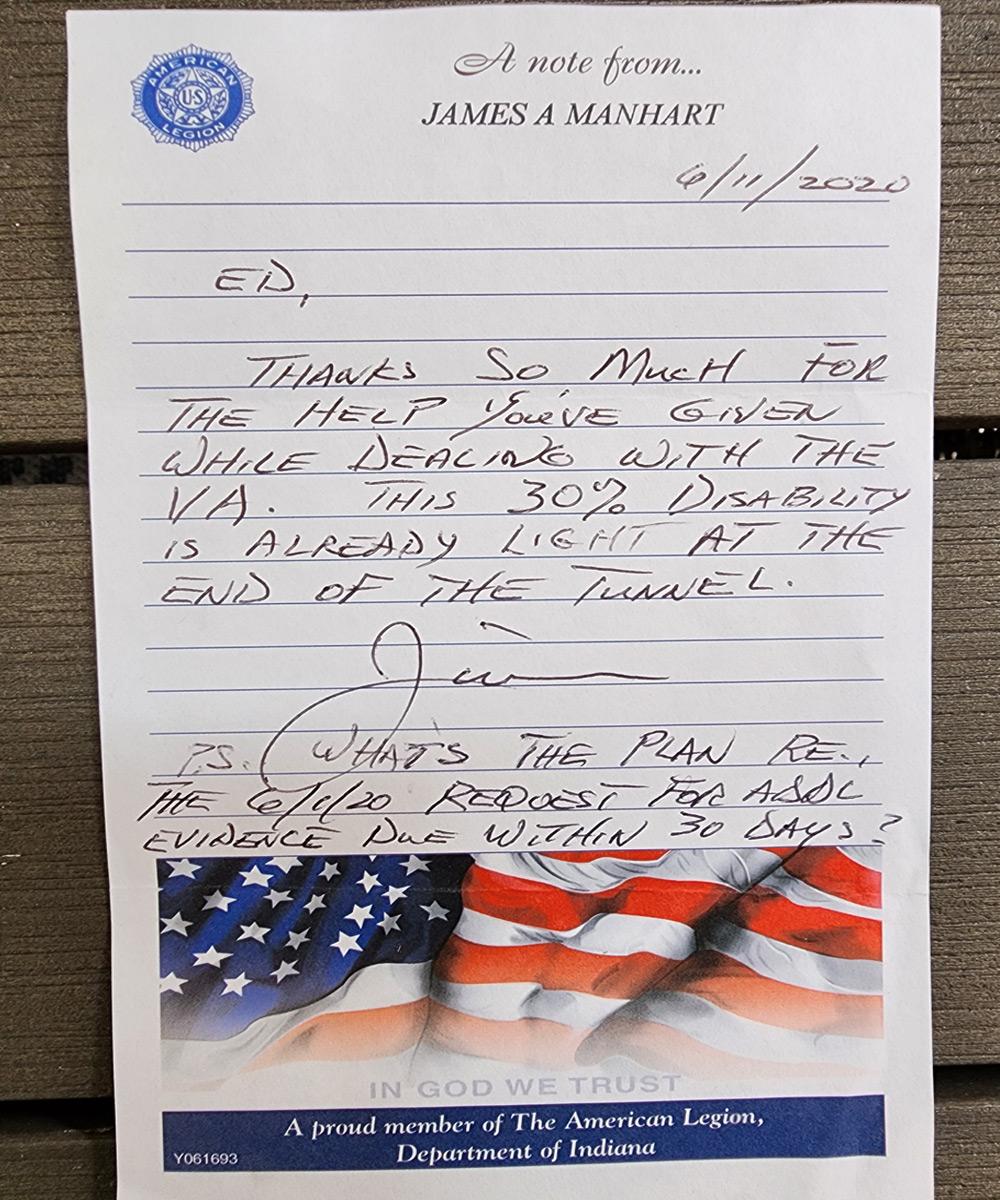 AMERICAN
U·S
LEGION
A note from...
JAMES A MANHART
6/11/2020
ED,
THANKS SO MUCH FOR
THE HELP YOU'VE GIVEN
WHILE DEALING WITH THE
VA. THIS 30% DISABILITY
IS ALREADY LIGHT AT THE
END OF THE TUNNEL.
Jim
P.S. WHAT'S THE PLAN RE.,
THE 6/1/20 REQUEST FOR ADDL
EVIDENCE DUE WITHIN 30 DAYS?
IN GOD WE TRUST
A proud member of The American Legion,
Department of Indiana
Y061693